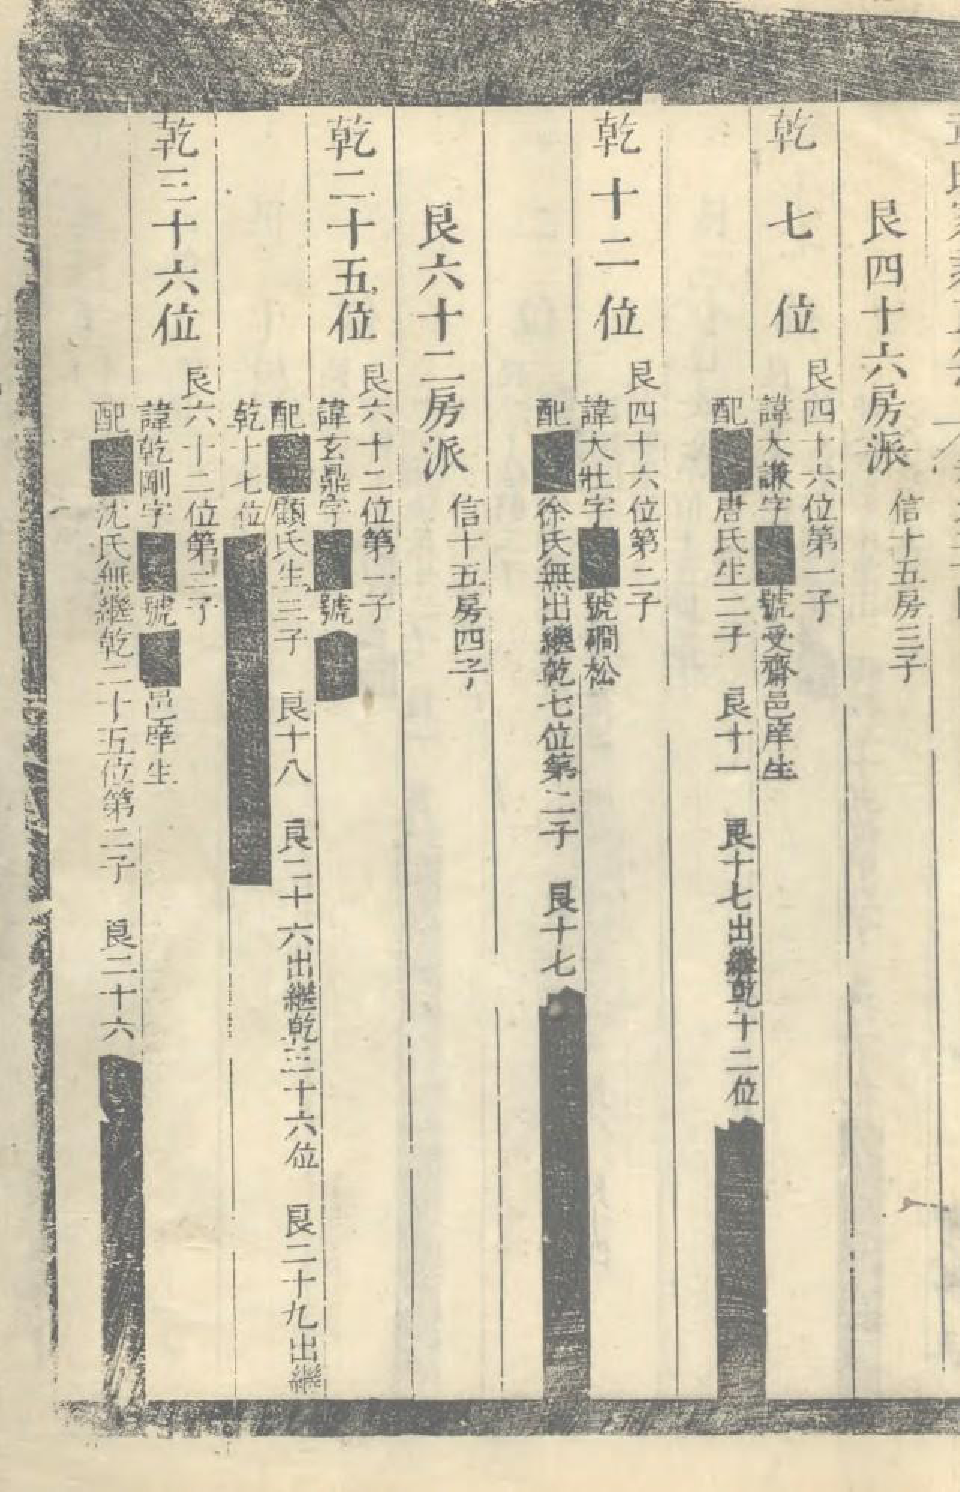 艮四十六房派
信十五房三子
乾七位
艮四十六位第一子
諱大謙字號受齋邑庠生
配唐氏生二子 艮十一 艮十七出繼乾十二位
乾十二位
艮四十六位第二子
諱大壯字號磵松
配徐氏無出繼乾七位第二子 艮十七
艮六十二房派
信十五房四子
乾二十五位
艮六十二位第一子
諱玄鼎字號
配顧氏生三子 艮十八 艮二十六出繼乾三十六位 艮二十九出繼
乾十七位
乾三十六位
艮六十二位第二子
諱乾剛字號邑庠生
配沈氏無繼乾二十五位第二子 艮二十六